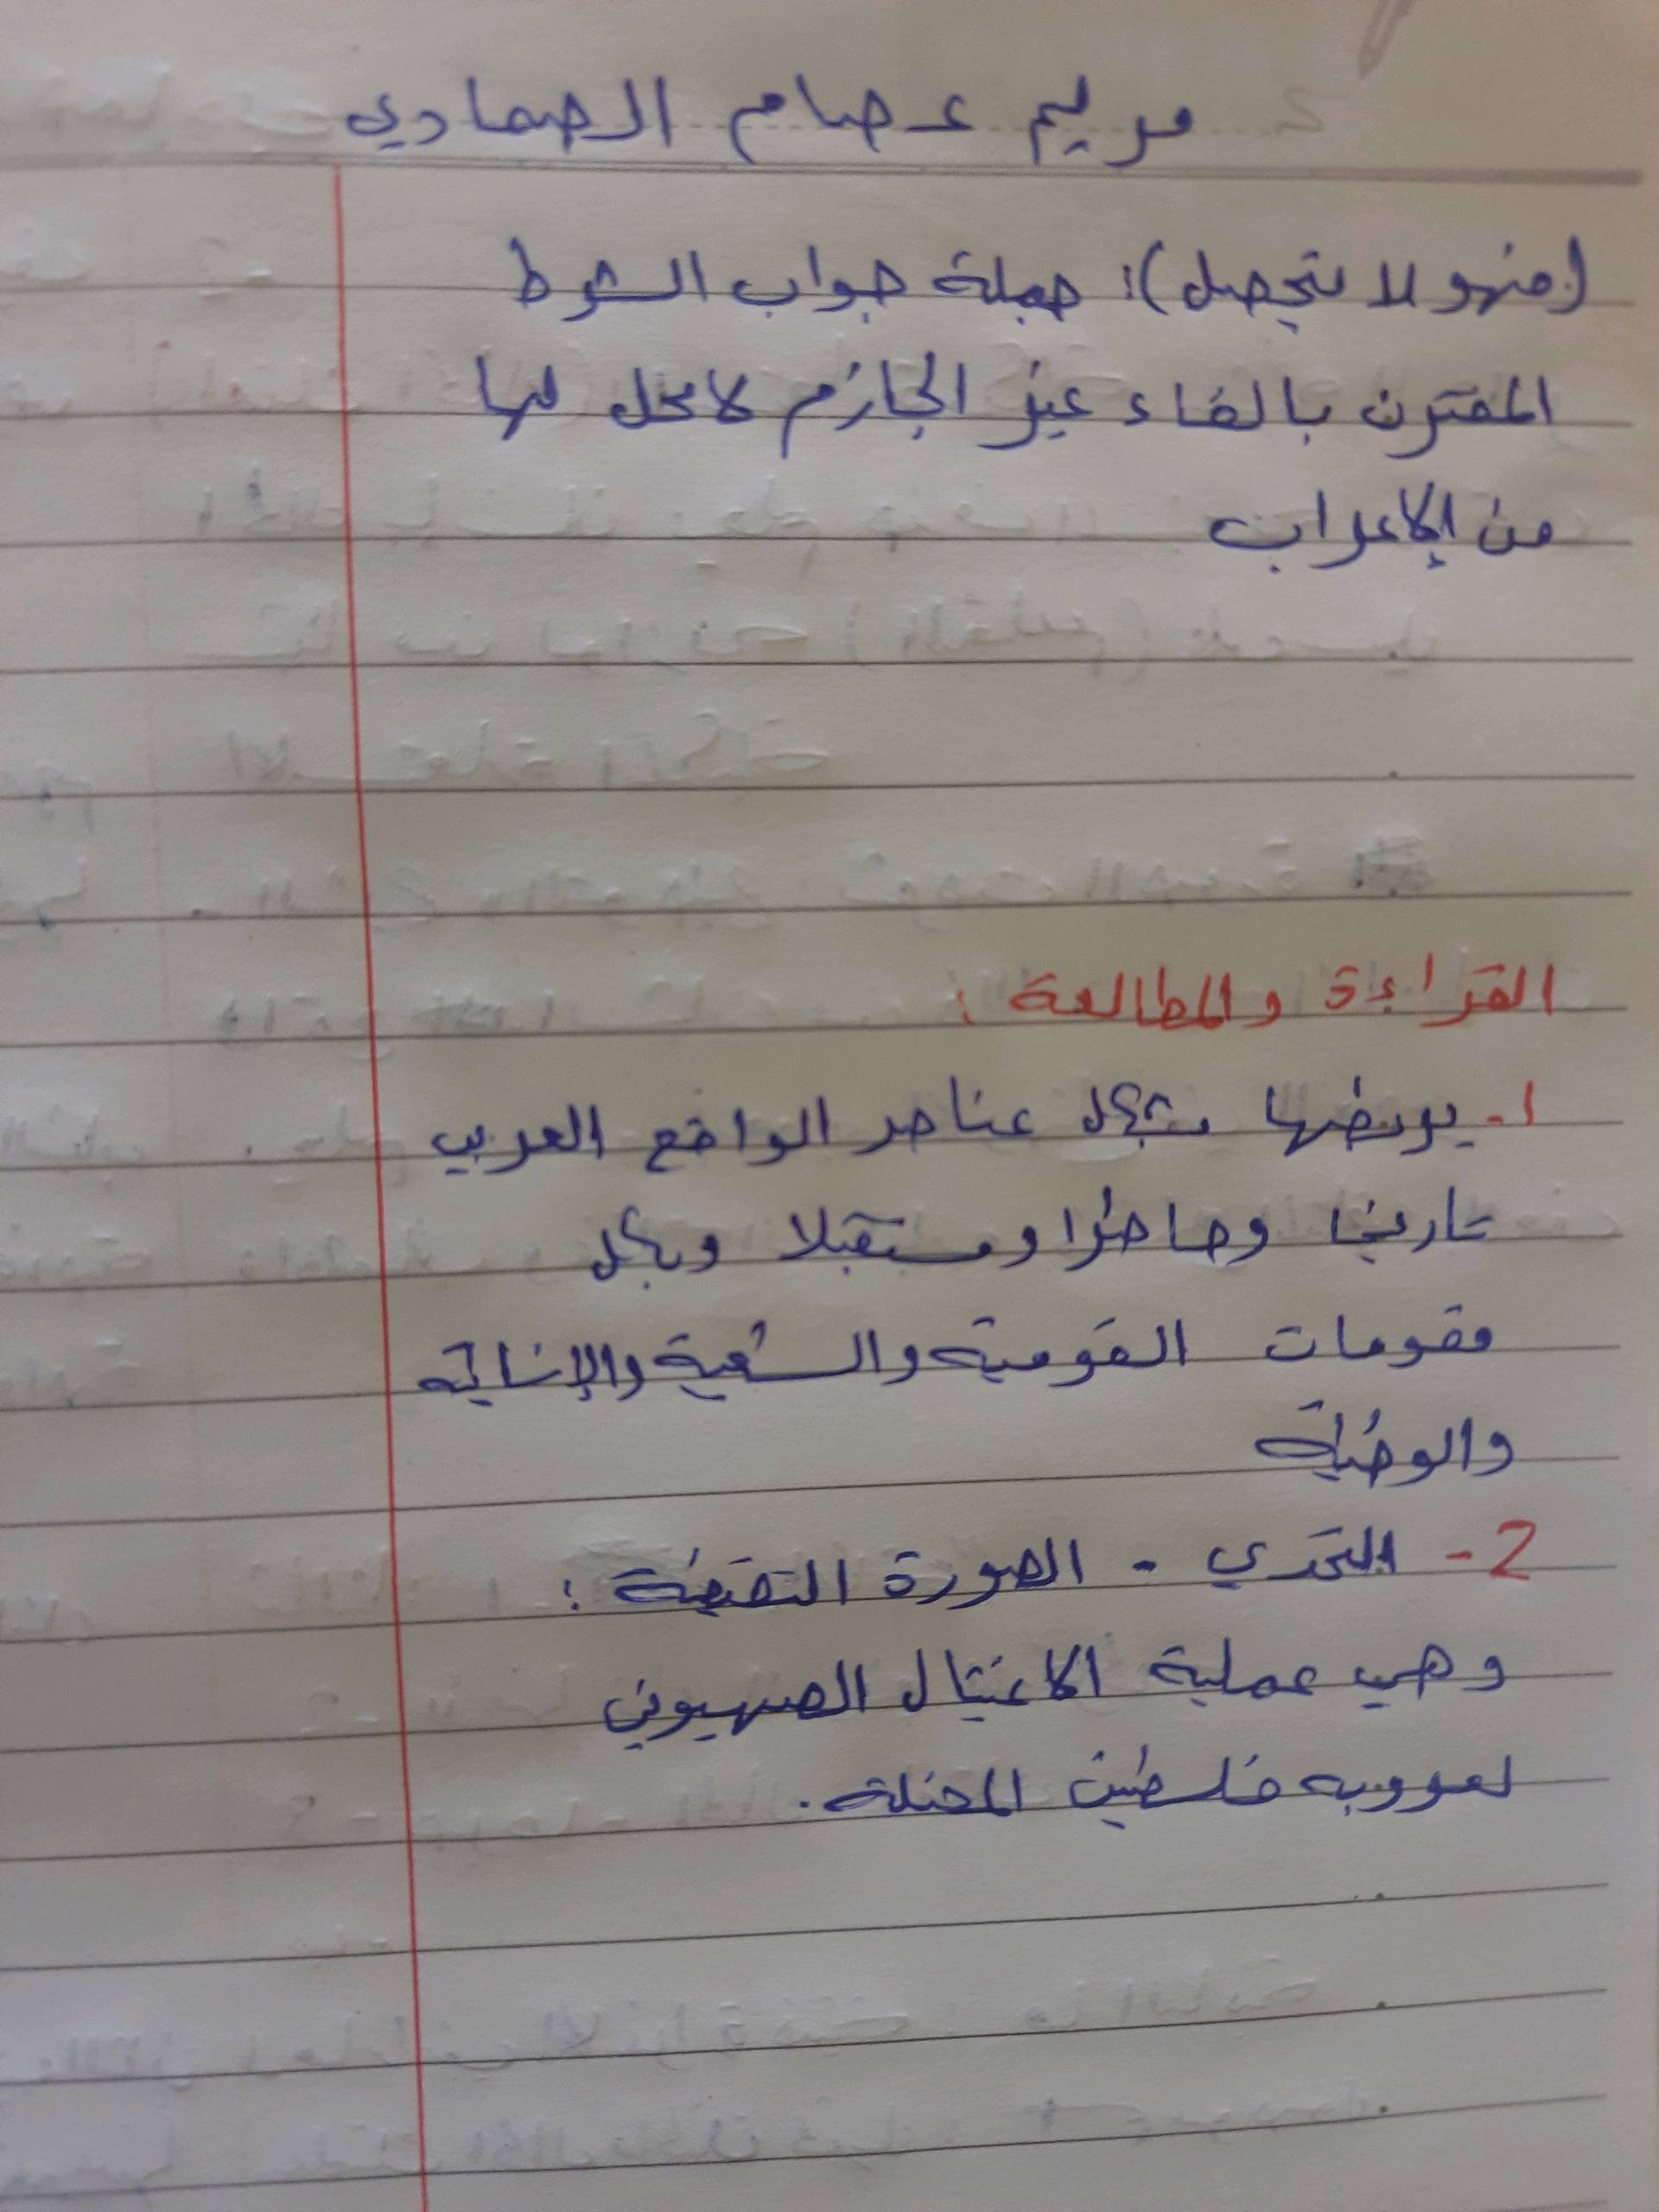 مريم عصام الصمادي
(فهو لا يتحصل): جملة جواب الشرط
المقترن بالفاء غير الجازم لا محل لها
من الإعراب
القراءة والمطالعة :
1- يربطها بكل عناصر الواقع العربي
تاريخا وحاضرا ومستقبلا وبكل
مقومات القومية والشعبية والإنسانية
والوطنية
2- التحدي - الصورة النقيضة :
وهي عملية الاغتيال الصهيوني
لعروبه فلسطين المحتلة .